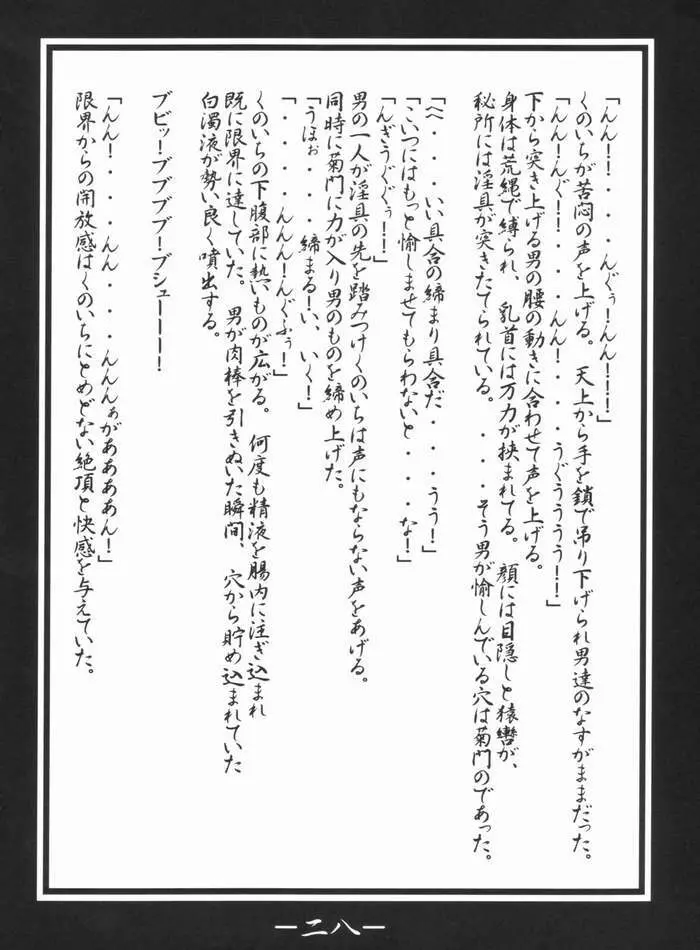 「んん！！・・・・んぐぅ！んん！！！」
くのいちが苦悶の声を上げる。 天上から手を鎖で吊り下げられ男達のなすがままだった。
「んん！んぐ！！・・・・んん！・・・・うぐうううう！！」
下から突き上げる男の腰の動きに合わせて声を上げる。
身体は荒縄で縛られ、 乳首には万力が挟まれてる。 顔には目隠しと猿轡が、
秘所には淫具が突きたてられている。・・・そう男が愉しんでいる穴は菊門のであった。
「へ・・・・いい具合の締まり具合だ・・・・うう！」
「こいつにはもっと愉しませてもらわないと・・・な！」
「んぎうぐぐぅ！！」
男の一人が淫具の先を踏みつけくのいちは声にもならない声をあげる。
同時に菊門に力が入り男のものを締め上げた。
「うほぉ・・・・締まる！い、いく！」
「・・・・んんん！んぐふぅ！」
くのいちの下腹部に熱いものが広がる。 何度も精液を腸内に注ぎ込まれ
既に限界に達していた。 男が肉棒を引きぬいた瞬間、 穴から貯め込まれていた
白濁液が勢い良く噴出する。
ブビッ！ブブブブ！ブシューーーー！
「んん！・・・・んん・・・・んんんぁがああああん！」
限界からの開放感はくのいちにとめどない絶頂と快感を与えていた。
－二八－